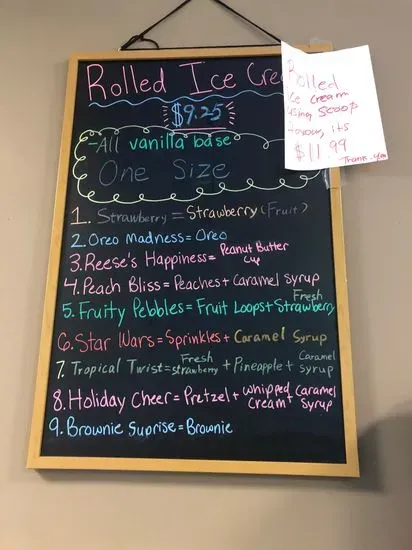 Rolled Ice Cre
$9.25
-All vanilla base
One Size
1. Strawberry = Strawberry (Fruit)
2. Oreo Madness = Oreo
3. Reese's Happiness = Peanut Butter Cup
4. Peach Bliss = Peaches + Caramel Syrup
5. Fruity Pebbles = Fruit Loops + Fresh Strawberry
6. Star Wars = Sprinkles + Caramel Syrup
7. Tropical Twist = Fresh strawberry + Pineapple + Caramel syrup
8. Holiday Cheer = Pretzel + Whipped Cream + Caramel Syrup
9. Brownie Suprise = Brownie
Rolled
Ice cream
using scoop
flavour, its
$11.99